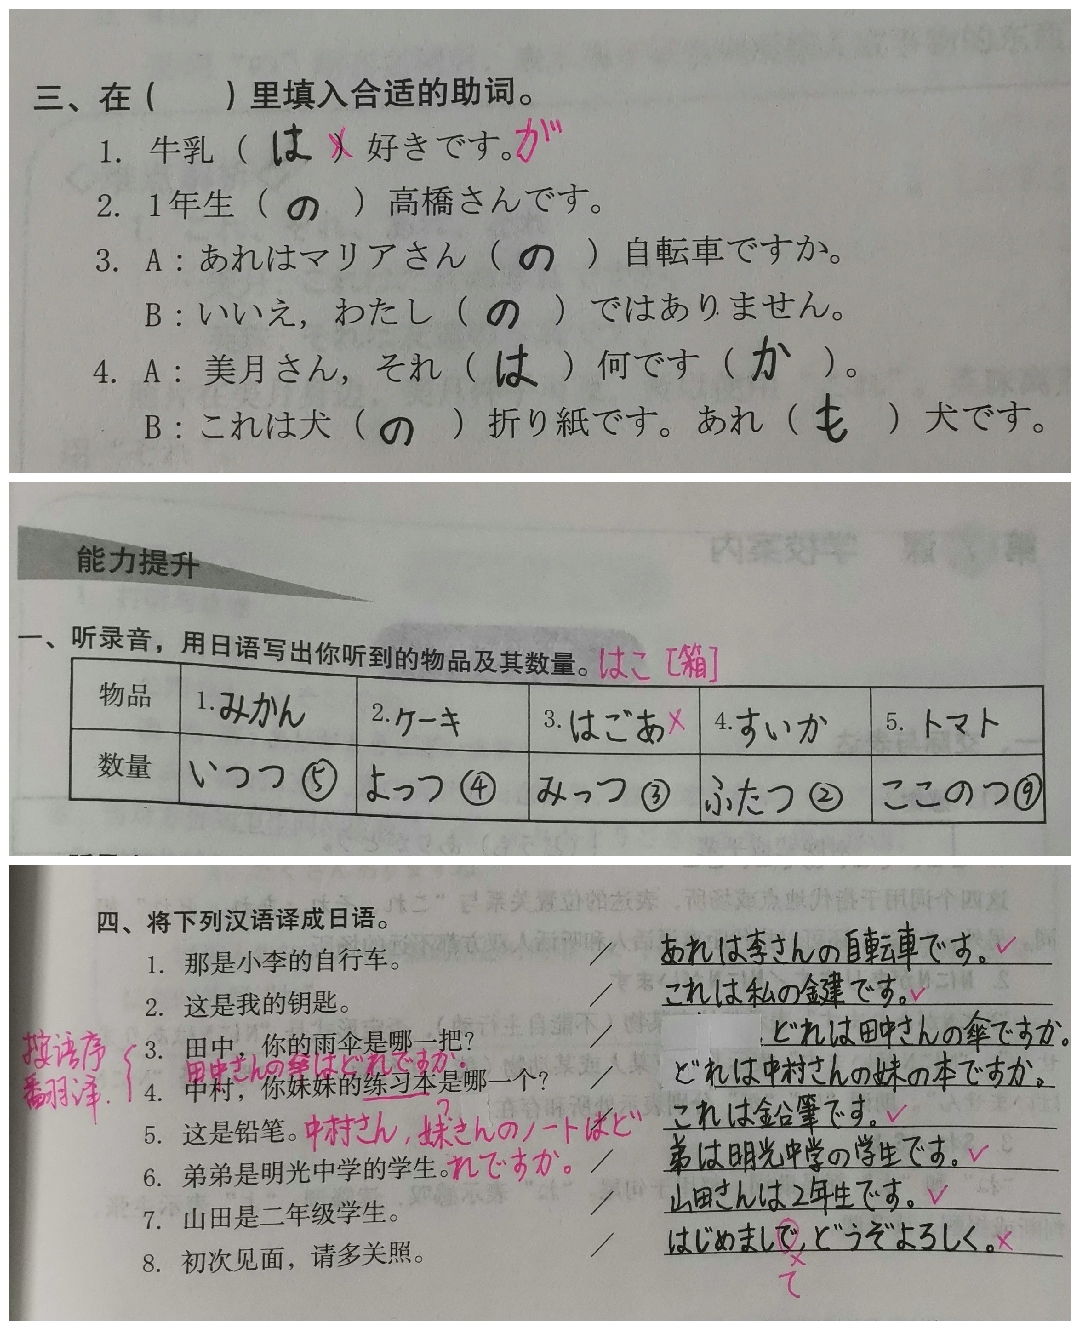 三、在（ ）里填入合适的助词。
1. 牛乳（ は ）好きです。が
2. 1年生（ の ）高橋さんです。
3. A：あれはマリアさん（ の ）自転車ですか。
B：いいえ，わたし（ の ）ではありません。
4. A：美月さん，それ（ は ）何です（ か ）。
B：これは犬（ の ）折り紙です。あれ（ も ）犬です。
能力提升
一、听录音，用日语写出你听到的物品及其数量。はこ［箱］
物品 1.みかん 2.ケーキ 3.はごあ× 4.すいか 5.トマト
数量 いつつ⑤ よっつ④ みっつ③ ふたつ② ここのつ⑨
四、将下列汉语译成日语。
1. 那是小李的自行车。 あれは李さんの自転車です。
2. 这是我的钥匙。 これは私の鍵です。
3. 田中，你的雨伞是哪一把？ どれは田中さんの傘ですか。
按语序
翻译.
田中さんの傘はどれですか。
4. 中村，你妹妹的练习本是哪一个？ どれは中村さんの妹の本ですか。
5. 这是铅笔。 これは鉛筆です。
中村さん，妹さんのノートはど
れですか。
6. 弟弟是明光中学的学生。 弟は明光中学の学生です。
7. 山田是二年级学生。 山田さんは2年生です。
8. 初次见面，请多关照。 はじめまして，どうぞよろしく。×
×
て